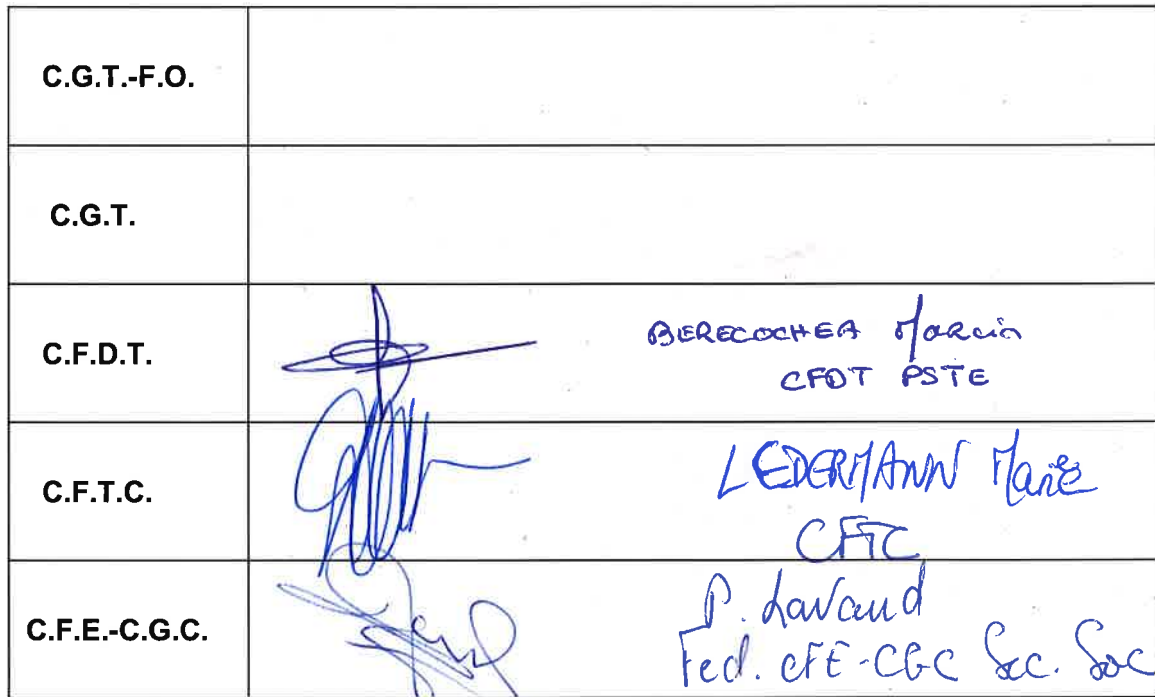 C.G.T.-F.O.
C.G.T.
C.F.D.T.
BERECOCHEA Marcin
CFDT PSTE
C.F.T.C.
LEDERMANN Marie
CFTC
C.F.E.-C.G.C.
P. Lavaud
Fed. CFE-CGC Sec. Soc